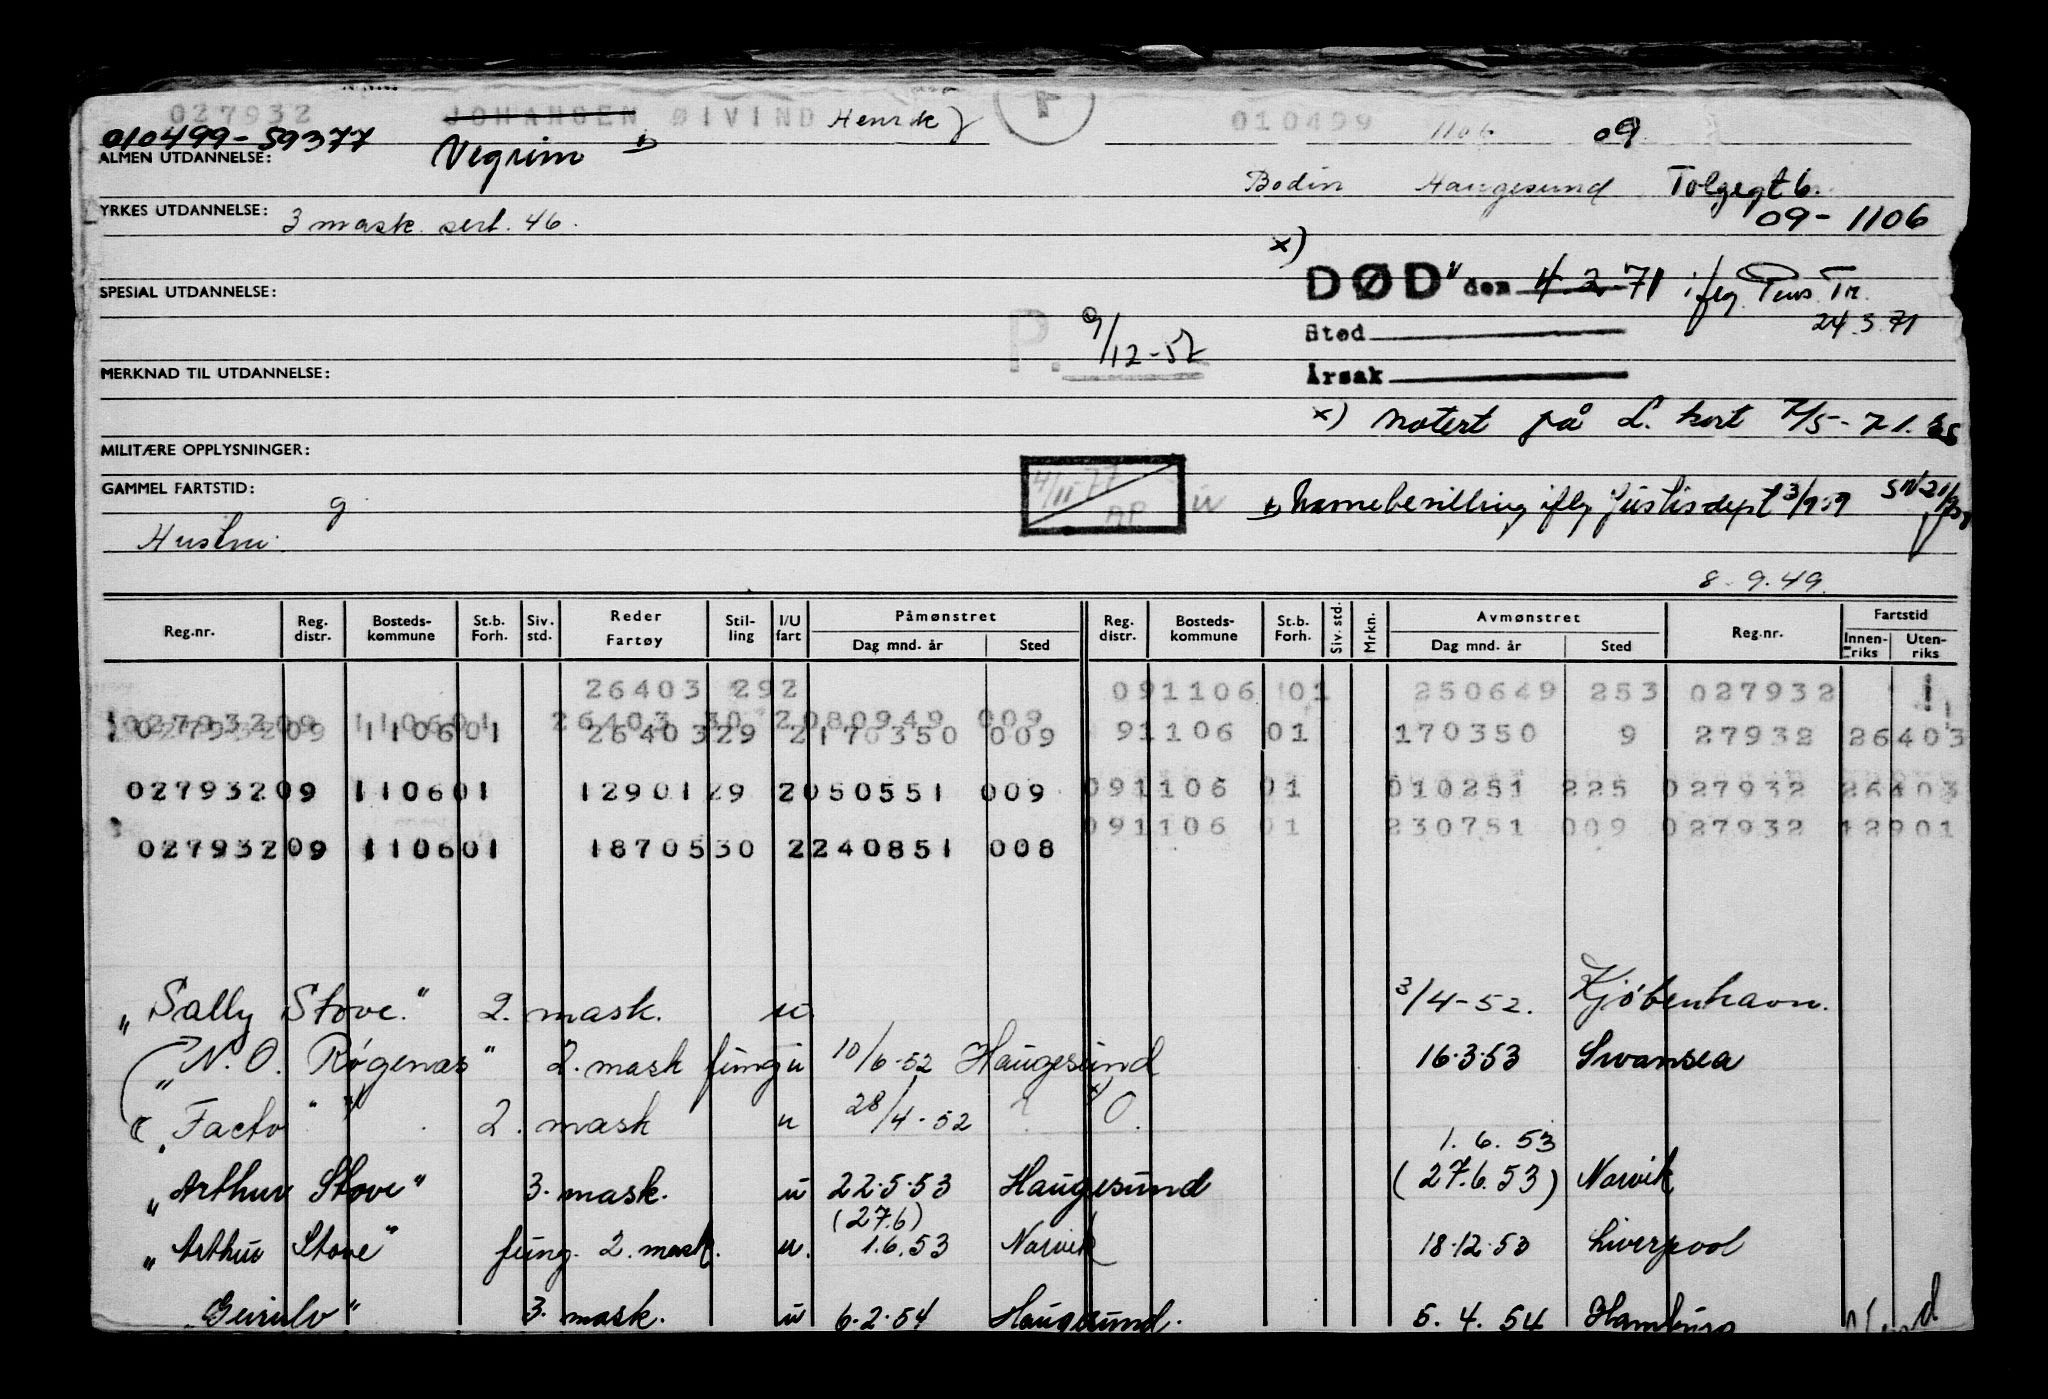 027932 JOHANSEN ØIVIND Henrik 010499 1106 09
010499-59377
ALMEN UTDANNELSE: Vegrim 1)
Bodin Haugesund Tolgegt 6.
YRKES UTDANNELSE: 3 mask. sert. 46.
09-1106
x)
DØD den 4.2.71 iflg. Pens. Tr.
24.3.71
SPESIAL UTDANNELSE:
Sted
P. 9/12-57
Årsak
MERKNAD TIL UTDANNELSE:
x) Notert på L. kort 7/5-71.
MILITÆRE OPPLYSNINGER:
4/11-77
GAMMEL FARTSTID: g
1) Navnebevilling iflg Justisdept 3/9 59
Hustru
8.9.49.
Reg.nr. Reg. distr. Bosteds-kommune St.b. Forh. Siv. std. Reder Fartøy Stil-ling I/U fart Påmønstret Dag mnd. år Sted Reg. distr. Bosteds-kommune St.b. Forh. Siv. std. Mrkn. Avmønstret Dag mnd. år Sted Reg.nr. Fartstid Innen-riks Uten-riks
26403 292 091106 01 250649 253 027932
027932 09 1106 01 26403 30 2 080949 009
027932 09 1106 01 26403 29 2 170350 009 91106 01 170350 9 27932 26403
027932 09 1106 01 12901 29 2 050551 009 091106 01 010251 225 027932 26403
091106 01 230751 009 027932 12901
027932 09 1106 01 18705 30 2 240851 008
"Sally Stove." 2. mask. u 3/4-52. Kjøbenhavn.
"N. O. Røgenæs" 2. mask fung u 10/6-52 Haugesund 16.3.53 Swansea
"Facto" 2. mask u 28/4-52
1. 6. 53
"Arthur Stove" 3. mask. u 22.5.53 Haugesund (27.6.53) Narvik
(27.6)
"Arthur Stove" fung. 2. mask. u. 1.6.53 Narvik 18.12.53 Liverpool
"Geirulv" 3. mask. u 6.2.54 Haugesund. 5. 4. 54 Hamburg